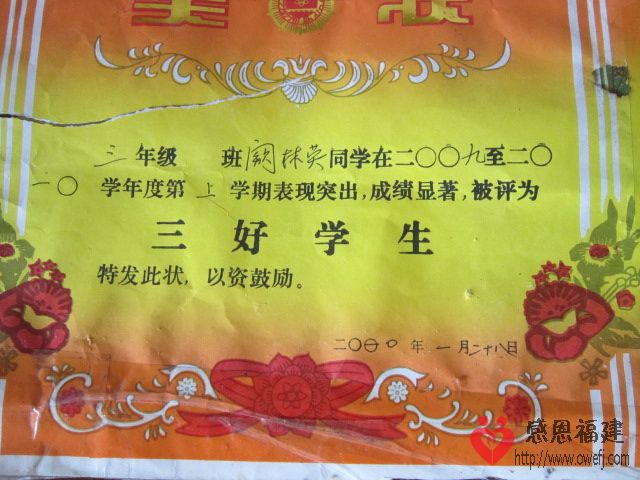 奖状
三年级 班阙林英同学在二〇〇九至二〇
一〇学年度第上学期表现突出,成绩显著,被评为
三好学生
特发此状,以资鼓励。
二〇〇〇年一月二十八日
感恩福建
http://www.owefj.com